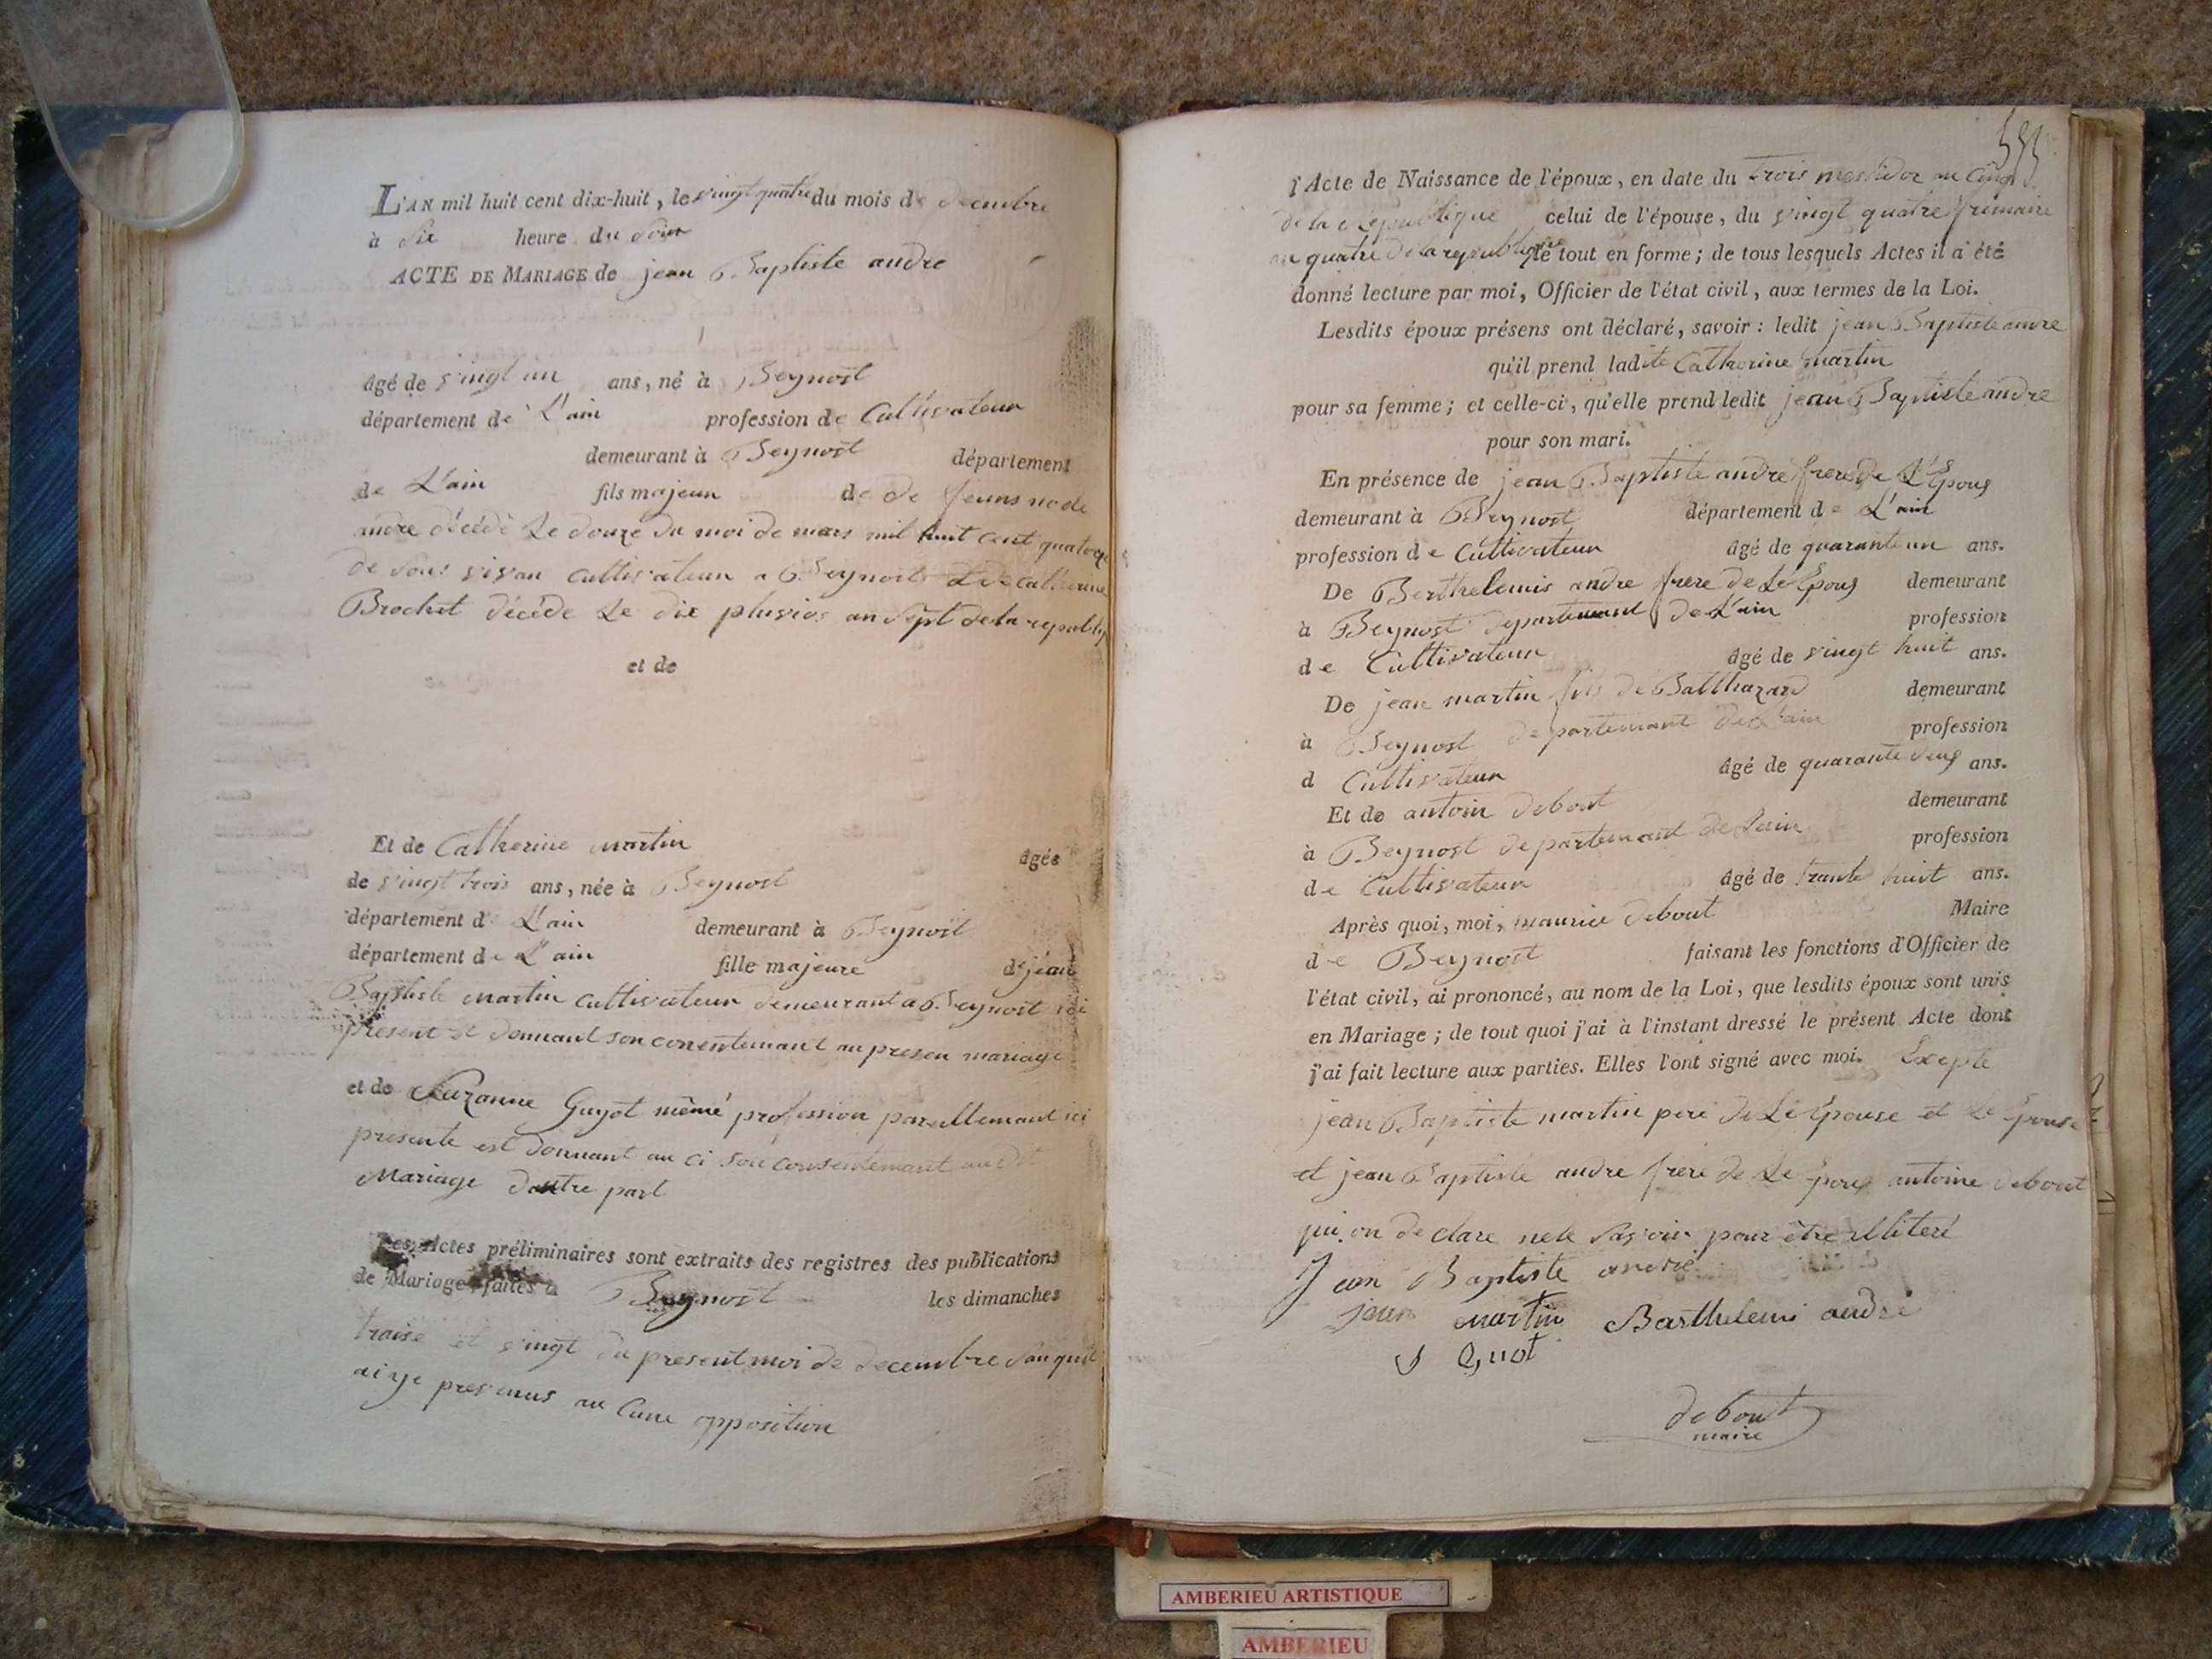 L'AN mil huit cent dix-huit, le vingt quatre du mois de decembre
à Six heure du Soir
ACTE DE MARIAGE de jean Baptiste andre
âgé de vingt un ans, né à Beynost
département de L'ain profession de Cultivateur
demeurant à Beynost département
de L'ain fils majeur de de
andre décédé Le douze du moi de mars mil huit cent quatorze
de Sont vivan Cultivateur a Beynost et de Catherine
Brochet décéde Le dix pluvios an Sept de la republiq
et de
Et de Catherine martin âgée
de vingt trois ans, née à Beynost
département de L'ain demeurant à Beynost
département de L'ain fille majeure de jean
Baptiste martin Cultivateur demeurant a Beynost ici
present et donnant son consentemant au presen mariage
et de Suzanne Guyot mêmê profession parellemant ici
presente est donnant au ci son consentemant audit
Mariage dautre part
Les Actes préliminaires sont extraits des registres des publications
de Mariage faites à Beynost les dimanches
traise et vingt du present moi de decembre San quil
ai ye prevenus au Cune opposition
555
l'Acte de Naissance de l'époux, en date du trois messidor an Cinq
de la Republique celui de l'épouse, du vingt quatre frimaire
an quatre de la republique le tout en forme; de tous lesquels Actes il a été
donné lecture par moi, Officier de l'état civil, aux termes de la Loi.
Lesdits époux présens ont déclaré, savoir: ledit jean Baptiste andre
qu'il prend ladite Catherine martin
pour sa femme; et celle-ci, qu'elle prend ledit jean Baptiste andre
pour son mari.
En présence de jean Baptiste andré frere de L'Epoux
demeurant à Beynost département de L'ain
profession de Cultivateur âgé de quarante un ans.
De Berthelemis andre frere de Le Epoux demeurant
à Beynost departemant de L'ain profession
de Cultivateur âgé de vingt huit ans.
De jean martin fils de Balthazard demeurant
à Beynost departemant de L'ain profession
d Cultivateur âgé de quarante deux ans.
Et de antoin debout demeurant
à Beynost departemant de Lain profession
de Cultivateur âgé de trante huit ans.
Après quoi, moi, maurice debout Maire
de Beynost faisant les fonctions d'Officier de
l'état civil, ai prononcé, au nom de la Loi, que lesdits époux sont unis
en Mariage; de tout quoi j'ai à l'instant dressé le présent Acte dont
j'ai fait lecture aux parties. Elles l'ont signé avec moi. Exepte
jean Baptiste martin pere de Le Epouse et Le Epouse
et jean Baptiste andre frere de Le Epoux antoine debout
qui on de clare ne le Savoir pour être illiteré
Jean Baptiste andré
jean martin Barthelemi andré
debout
maire
AMBERIEU ARTISTIQUE
AMBERIEU